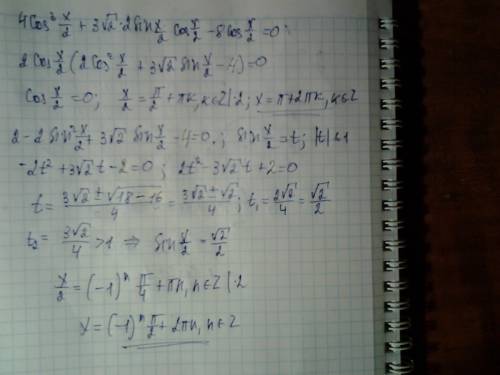 4cos³x/2 + 3√2·2sin x/2 cos x/2 - 8cos x/2 = 0;
2cos x/2 (2cos² x/2 + 3√2 sin x/2 - 4) = 0
cos x/2 = 0; x/2 = π/2 + πk, k∈Z |·2; x = π+2πk, k∈Z
2-2sin² x/2 + 3√2 sin x/2 - 4 = 0; sin x/2 = t; |t|≤1
-2t² + 3√2t - 2 = 0; 2t² - 3√2t + 2 = 0
t = (3√2 ± √18-16)/4 = (3√2 ± √2)/4; t₁ = 2√2/4 = √2/2
t₂ = 3√2/4 > 1 ⇒ sin x/2 = √2/2
x/2 = (-1)ⁿ π/4 + πn, n∈Z |·2
x = (-1)ⁿ π/2 + 2πn, n∈Z